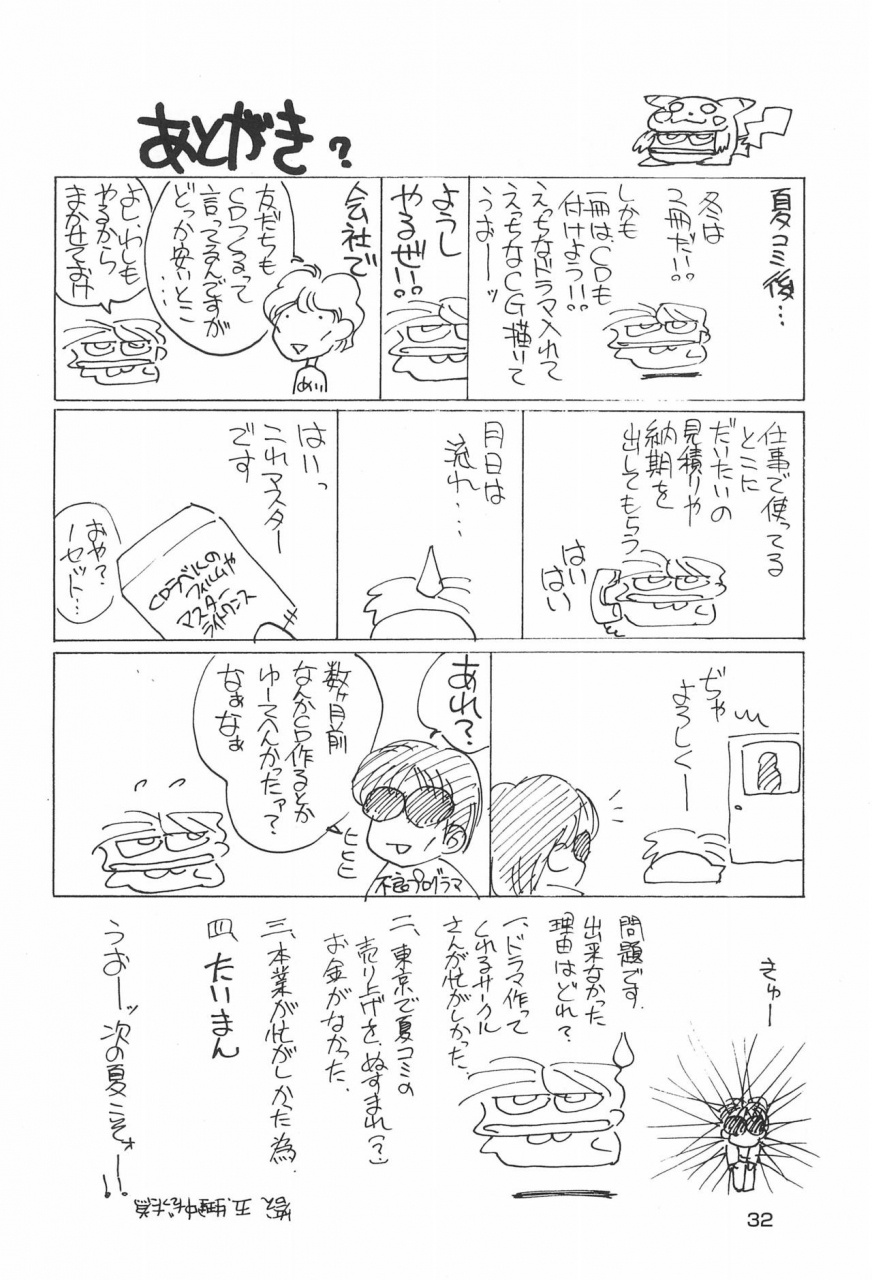 あとがき?
夏コミ後…
冬は
2冊だー!!
しかも
一冊は、CDも
付けよう!!
えっちなドラマ入れて
えっちなCG描いて
うおーッ
ようし
やるぜ!!
会社で
友だちも
CDつくるって
言ってるんですが
どっか安いとこ
…
めい
よし、わしも
やるから
まかせておけ
仕事で使ってる
とこに
だいたいの
見積りや
納期を
出してもらう
はい
はい
月日は
流れ…
はいっ
これマスター
です
CDラベルの
フィルムや
マスター
おや?
1セット…
ぢゃ
よろしくー
あれ?
数ヶ月前
なんかCD作るとか
ゆーてへんかったァ?
なぁなぁ
ヒヒヒ
不良プログラマ
きゅー
問題です.
出来なかった
理由はどれ?
一、ドラマ作って
くれるサークル
さんが忙がしかった.
二、東京で夏コミの
売り上げを、ぬすまれ(?)
お金がなかった.
三、本業が忙がしかった為.
四、たいまん
うおーッ次の夏こそォー!!
32